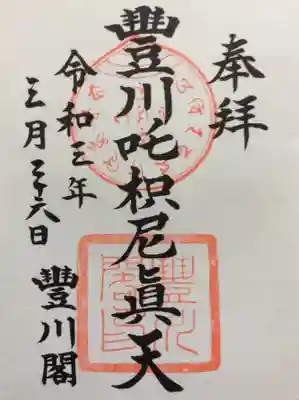 奉拝
豐川吒枳尼眞天
令和三年
三月二十六日
豐川閣